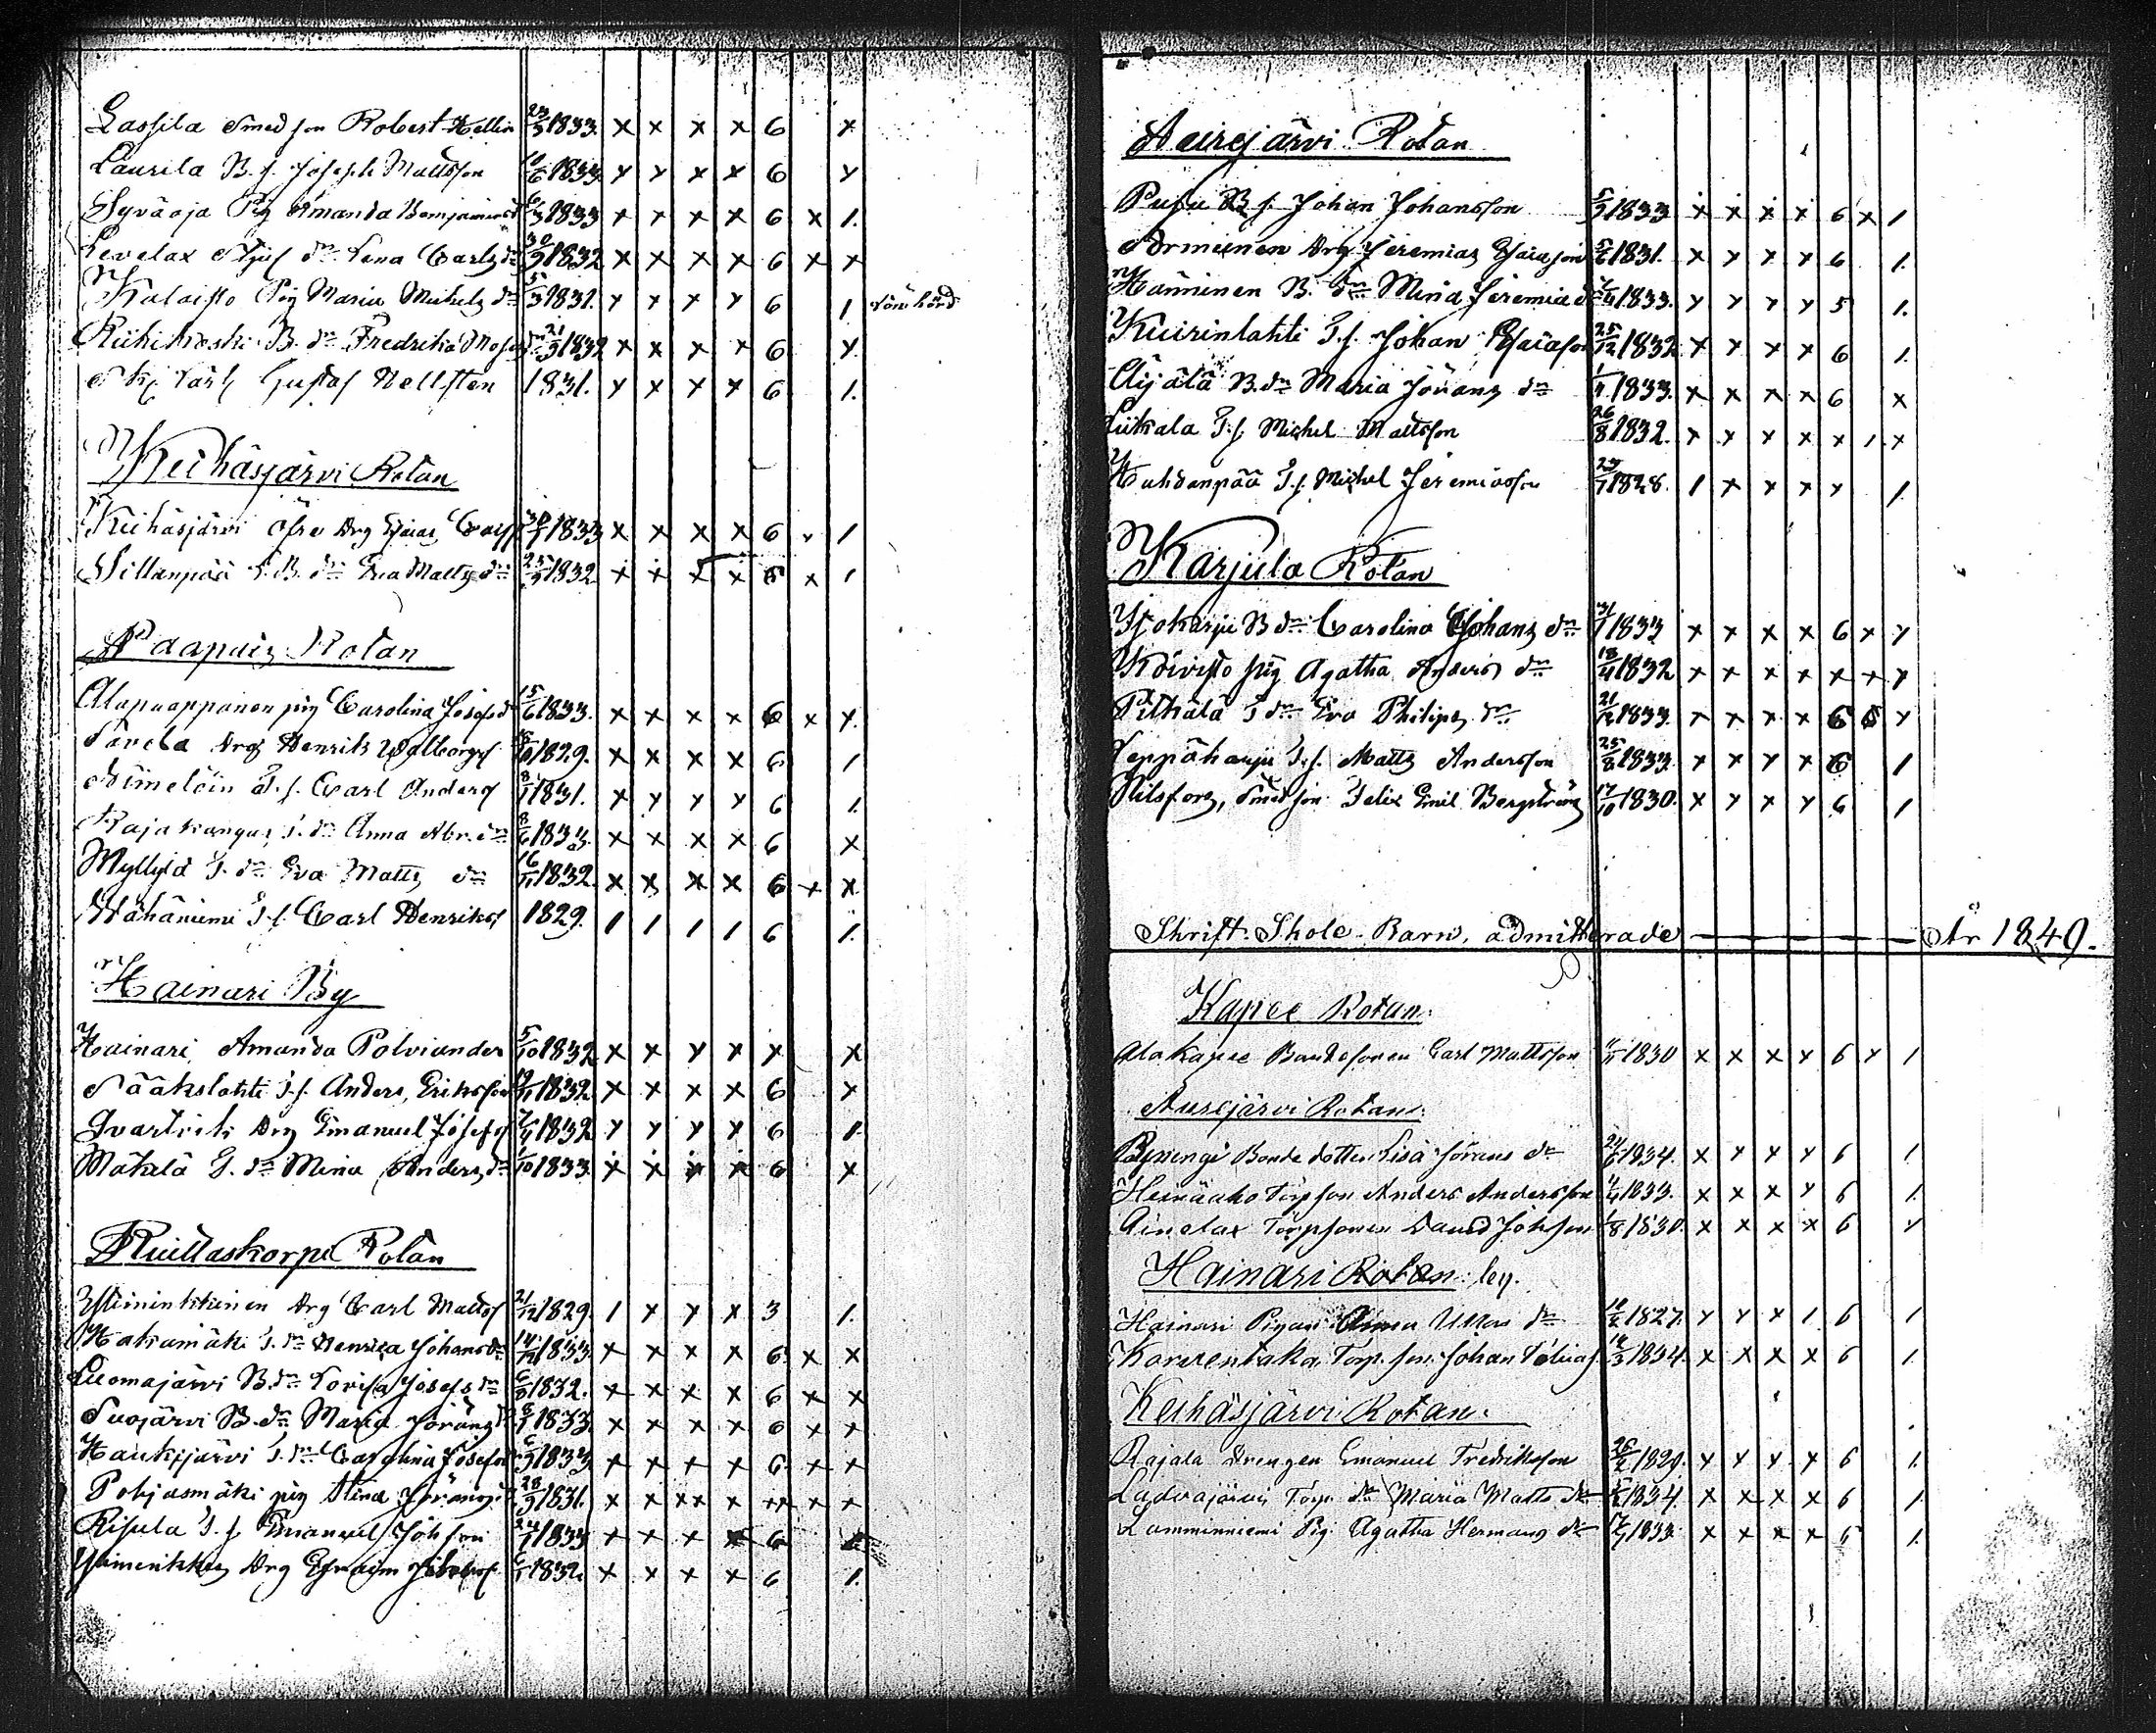 Lassila Smed son Robert Hellin 23/3 1833. x x x x 6 x
Laurila B. s. Joseph Mattsson 10/6 1833. x x x x 6 x
Syväoja Pig Amanda Benjaminsd 6/3 1833 x x x x 6 x 1.
Levelax dn Lena Carls dn 30/9 1832 x x x x 6 x x
Kalaisto Pig Maria Michels dn 5/3 1831. x x x x 6 1 lönhörd
Riihikoski B. dn Fredrika dn 21/3 1832 x x x x 6 x.
Gustaf Hellsten 1831. x x x x 6 1.
Keihäsjärvi Rotan
Keihäsjärvi öfre Drg Esaias 1833 x x x x 6 x 1
Sillanpää B. dn Eva Matts dn 25/9 1832 x x x x 6 x 1
Paapais Rotan
Alapaappanen pig Carolina Josefsd 15/6 1833. x x x x 6 x x.
Tävelä Drg Henrik Walborgs 1829. x x x x 6 1
Niimelöin T. s. Carl Anders 8/1 1831. x x x x 6 1.
Rajakangas T. dn Anna Abr. dn 8/6 1833. x x x x 6 x
Myllylä T. dn Eva Matts dn 16/11 1832. x x x x 6 x x.
Wähäniemi T. s. Carl Henriks 1829. 1 1 1 1 6 1.
Hainari By
Hainari, Amanda Polviander 5/10 1832 x x x x x x
Sääkslahti T. s. Anders Eriksson 19/11 1832 x x x x 6 x
Qvartrik Drg Emanuel Josefs 7/4 1832 x x x x 6 1.
Mäkelä T. dn Mina Anders dn 1/10 1833. x x x x 6 x
Kuittaskorpi Rotan
Drg Carl Matts 21/12 1829. 1 x x x 3 1.
Hakamäki T. dn Henrica Johans dn 14/12 1833. x x x x 6 x x
Luomajärvi B. dn Lovisa Josefs dn 6/8 1832. x x x x 6 x x
Suojärvi B. dn Maria Jörans 8/1 1833 x x x x 6 x x
Haukijärvi T. dn Carolina Josefs 6/3 1833 x x x x 6 x x
Pohjasmäki pig Stina Jörans 28/9 1831. x x xx x xx x x
Risula T. s. Emanuel Johsson 24/1 1833 x x x x 6
Drg Efraim 6/1 1832. x x x x 6 1.
Aurejärvi Rotan
Pusu B. s. Johan Johansson 5/2 1833 x x x x 6 x 1
Sorminen Drg Jeremias Esaiasson 5/6 1831. x x x x 6 1.
Hänninen B. dn Mina Jeremiæ d 7/4 1833. x x x x 5 1.
Kuirinlahti T. s. Johan Esaiasson 25/12 1832 x x x x 6 1.
Äijälä B. dn Maria Jörans dn 1/11 1833. x x x x 6 x
Liikala T. s. Michel Mattsson 26/8 1832. x x x x x 1 x
Huhdanpää T. s. Michel Jeremiasson 23/7 1828. 1 x x x x 1.
Karjula Rotan
Isokarju B dn Carolina Johans dn 31/1 1833 x x x x 6 x x
Koivisto pig Agatha Anders dn 18/4 1832 x x x x x x x
Pitkälä T dn Eva Philips dn 21/12 1833. x x x x 6 6 x
Leppäharju T. s. Matts Andersson 25/8 1833. x x x x 6 1
Pilsfors, Smed son Felix Emil Bergström 17/10 1830. x x x x 6 1
Skrift Skole Barn, admitterade År 1849.
Kapee Rotan.
Alakapee Bondesonen Carl Mattsson 11/11 1830 x x x x 6 x 1
Aurejärvi Rotan.
Bonde dotter Lisa Jörans dn 24/6 1834. x x x x 6 1.
Heinäaho Torpson Anders Andersson 11/4 1833. x x x x 6 1.
Ainelax Torpsonen David Johsson 1/8 1830. x x x x 6 x
Hainari Rotan by.
Hainari Pigan Anna Ullas dn 10/2 1827. x x x 1 6 1
Korvenlaka Torp. son Johan Tobias 14/3 1834. x x x x 6 1.
Keihäsjärvi Rotan.
Rajala Drengen Emanuel Fredriksson 26/2 1829. x x x x 6 1.
Ladvajärvi Torp. dn Maria Matts dn 1834. x x x x 6 1.
Lamminniemi Pig. Agatha Hermans dn 17/7 1833. x x x x 6 1.